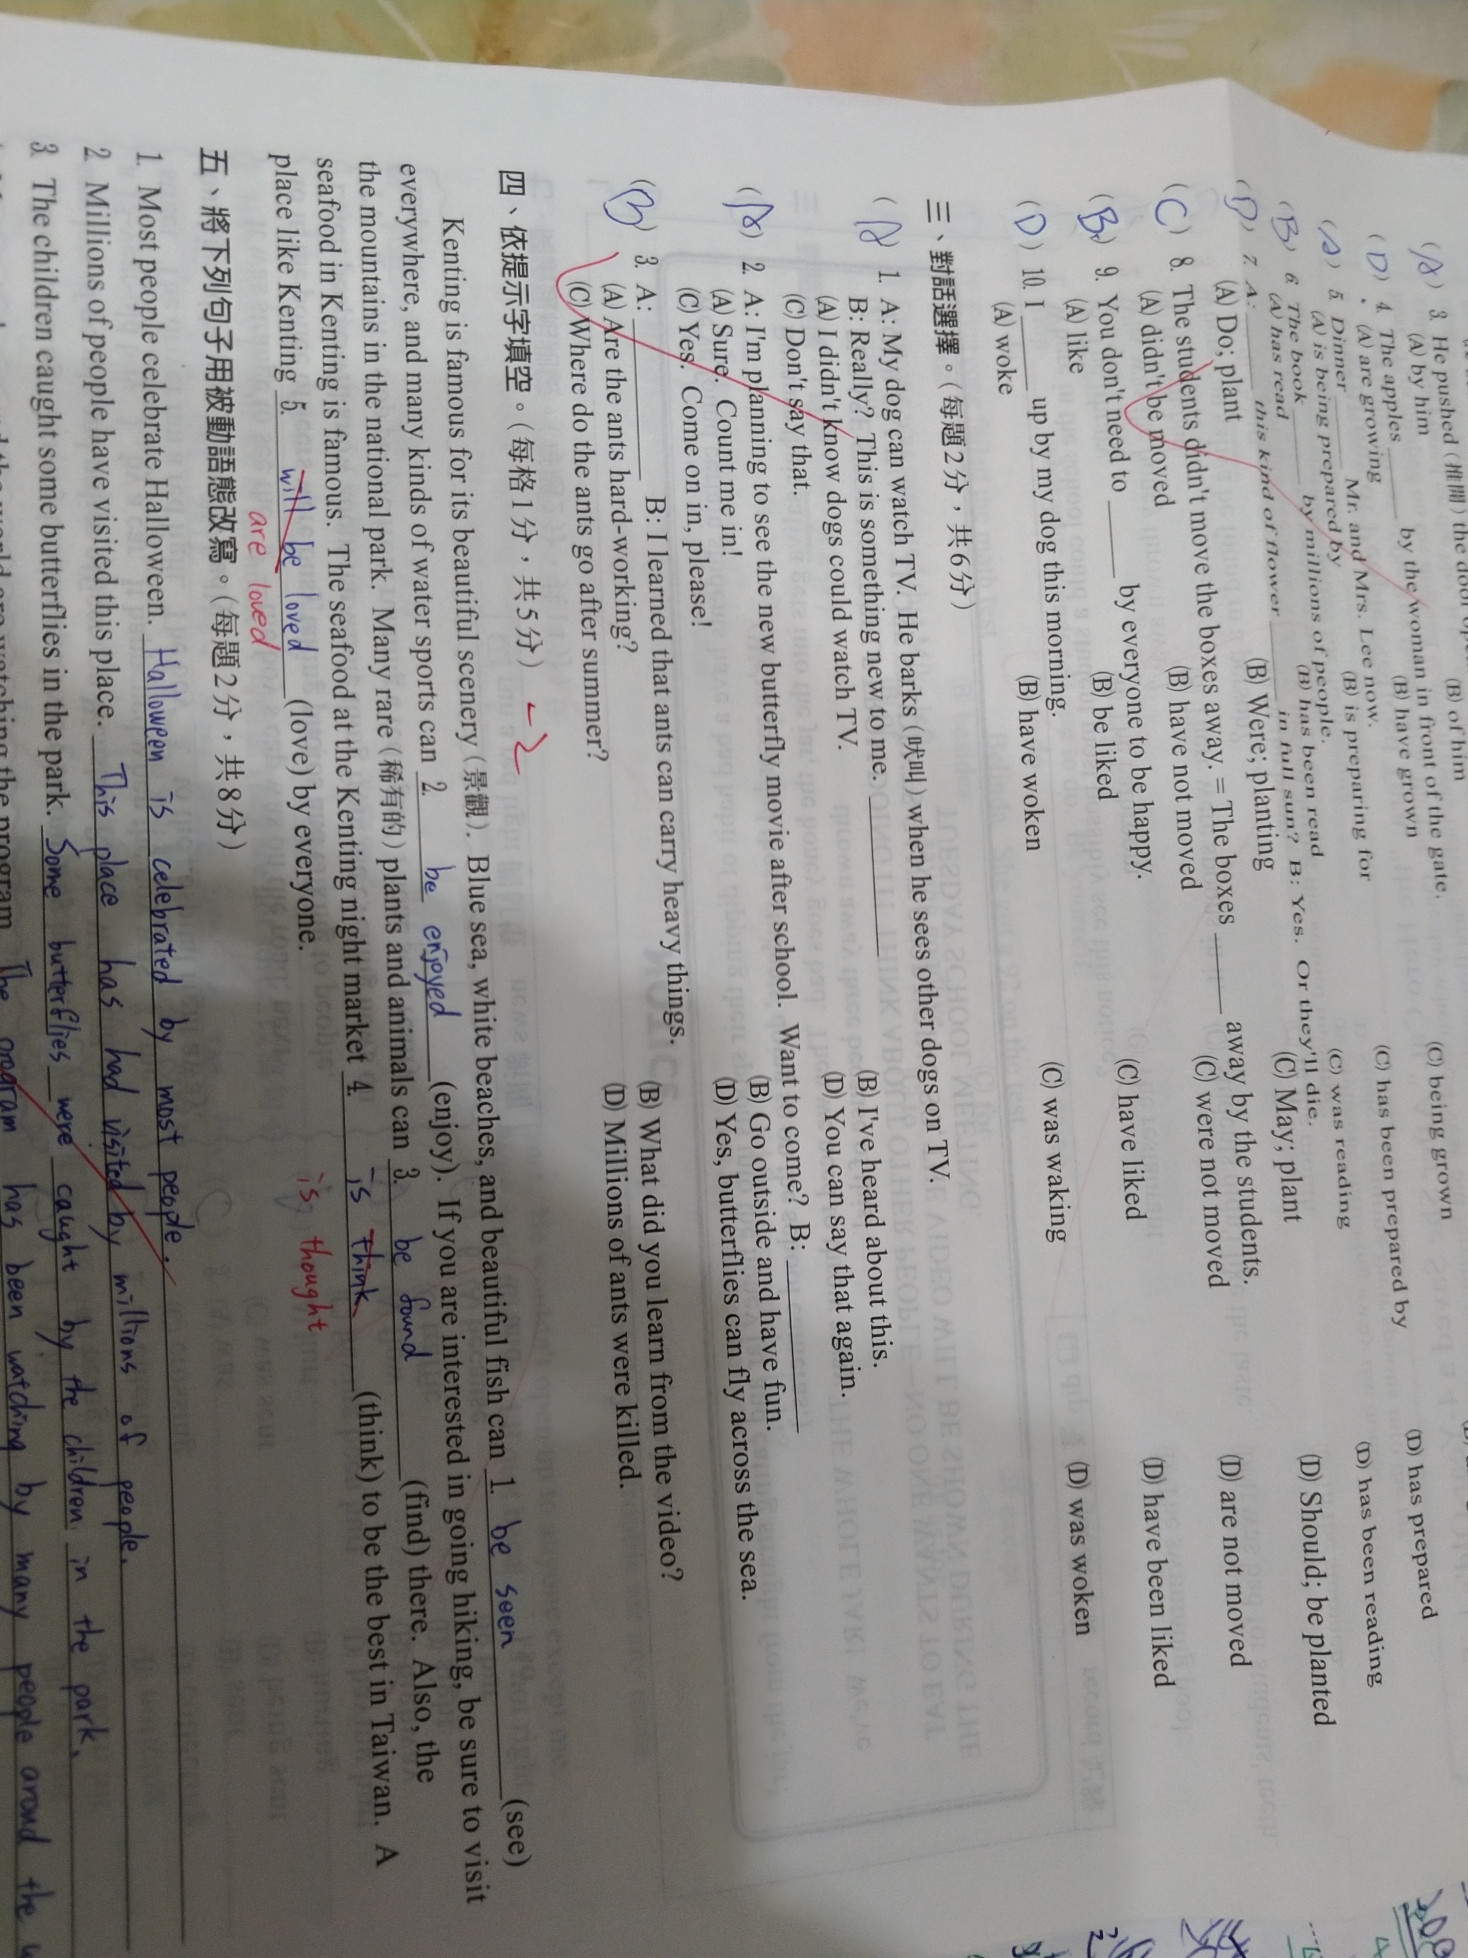 3. He pushed (推開) the door
(A) by him (B) of him (C) being grown
(A) 4. The apples ______ by the woman in front of the gate.
(D) (A) are growing (B) have grown (C) has been prepared by (D) has prepared
(A) 5. Dinner ______ Mr. and Mrs. Lee now.
(A) is being prepared by (B) is preparing for (C) was reading (D) has been reading
(B) 6. The book ______ by millions of people.
(A) has read (B) has been read
(D) 7. A: ______ this kind of flower ______ in full sun? B: Yes. Or they'll die.
(A) Do; plant (B) Were; planting (C) May; plant (D) Should; be planted
(C) 8. The students didn't move the boxes away. = The boxes ______ away by the students.
(A) didn't be moved (B) have not moved (C) were not moved (D) are not moved
(B) 9. You don't need to ______ by everyone to be happy.
(A) like (B) be liked (C) have liked (D) have been liked
(D) 10. I ______ up by my dog this morning.
(A) woke (B) have woken (C) was waking (D) was woken
三、對話選擇。(每題2分，共6分)
(A) 1. A: My dog can watch TV. He barks (吠叫) when he sees other dogs on TV.
B: Really? This is something new to me. ______
(A) I didn't know dogs could watch TV. (B) I've heard about this.
(C) Don't say that. (D) You can say that again.
(A) 2. A: I'm planning to see the new butterfly movie after school. Want to come? B: ______
(A) Sure. Count me in! (B) Go outside and have fun.
(C) Yes. Come on in, please! (D) Yes, butterflies can fly across the sea.
(B) 3. A: ______ B: I learned that ants can carry heavy things.
(A) Are the ants hard-working? (B) What did you learn from the video?
(C) Where do the ants go after summer? (D) Millions of ants were killed.
四、依提示字填空。(每格1分，共5分) -2
Kenting is famous for its beautiful scenery (景觀). Blue sea, white beaches, and beautiful fish can 1. be seen (see)
everywhere, and many kinds of water sports can 2. be enjoyed (enjoy). If you are interested in going hiking, be sure to visit
the mountains in the national park. Many rare (稀有的) plants and animals can 3. be found (find) there. Also, the
seafood in Kenting is famous. The seafood at the Kenting night market 4. is think (think) to be the best in Taiwan. A
is thought
place like Kenting 5. will be loved (love) by everyone.
are loved
五、將下列句子用被動語態改寫。(每題2分，共8分)
1. Most people celebrate Halloween. Halloween is celebrated by most people.
2. Millions of people have visited this place. This place has had visited by millions of people.
3. The children caught some butterflies in the park. Some butterflies were caught by the children in the park.
watching the program. The program has been watching by many people around the